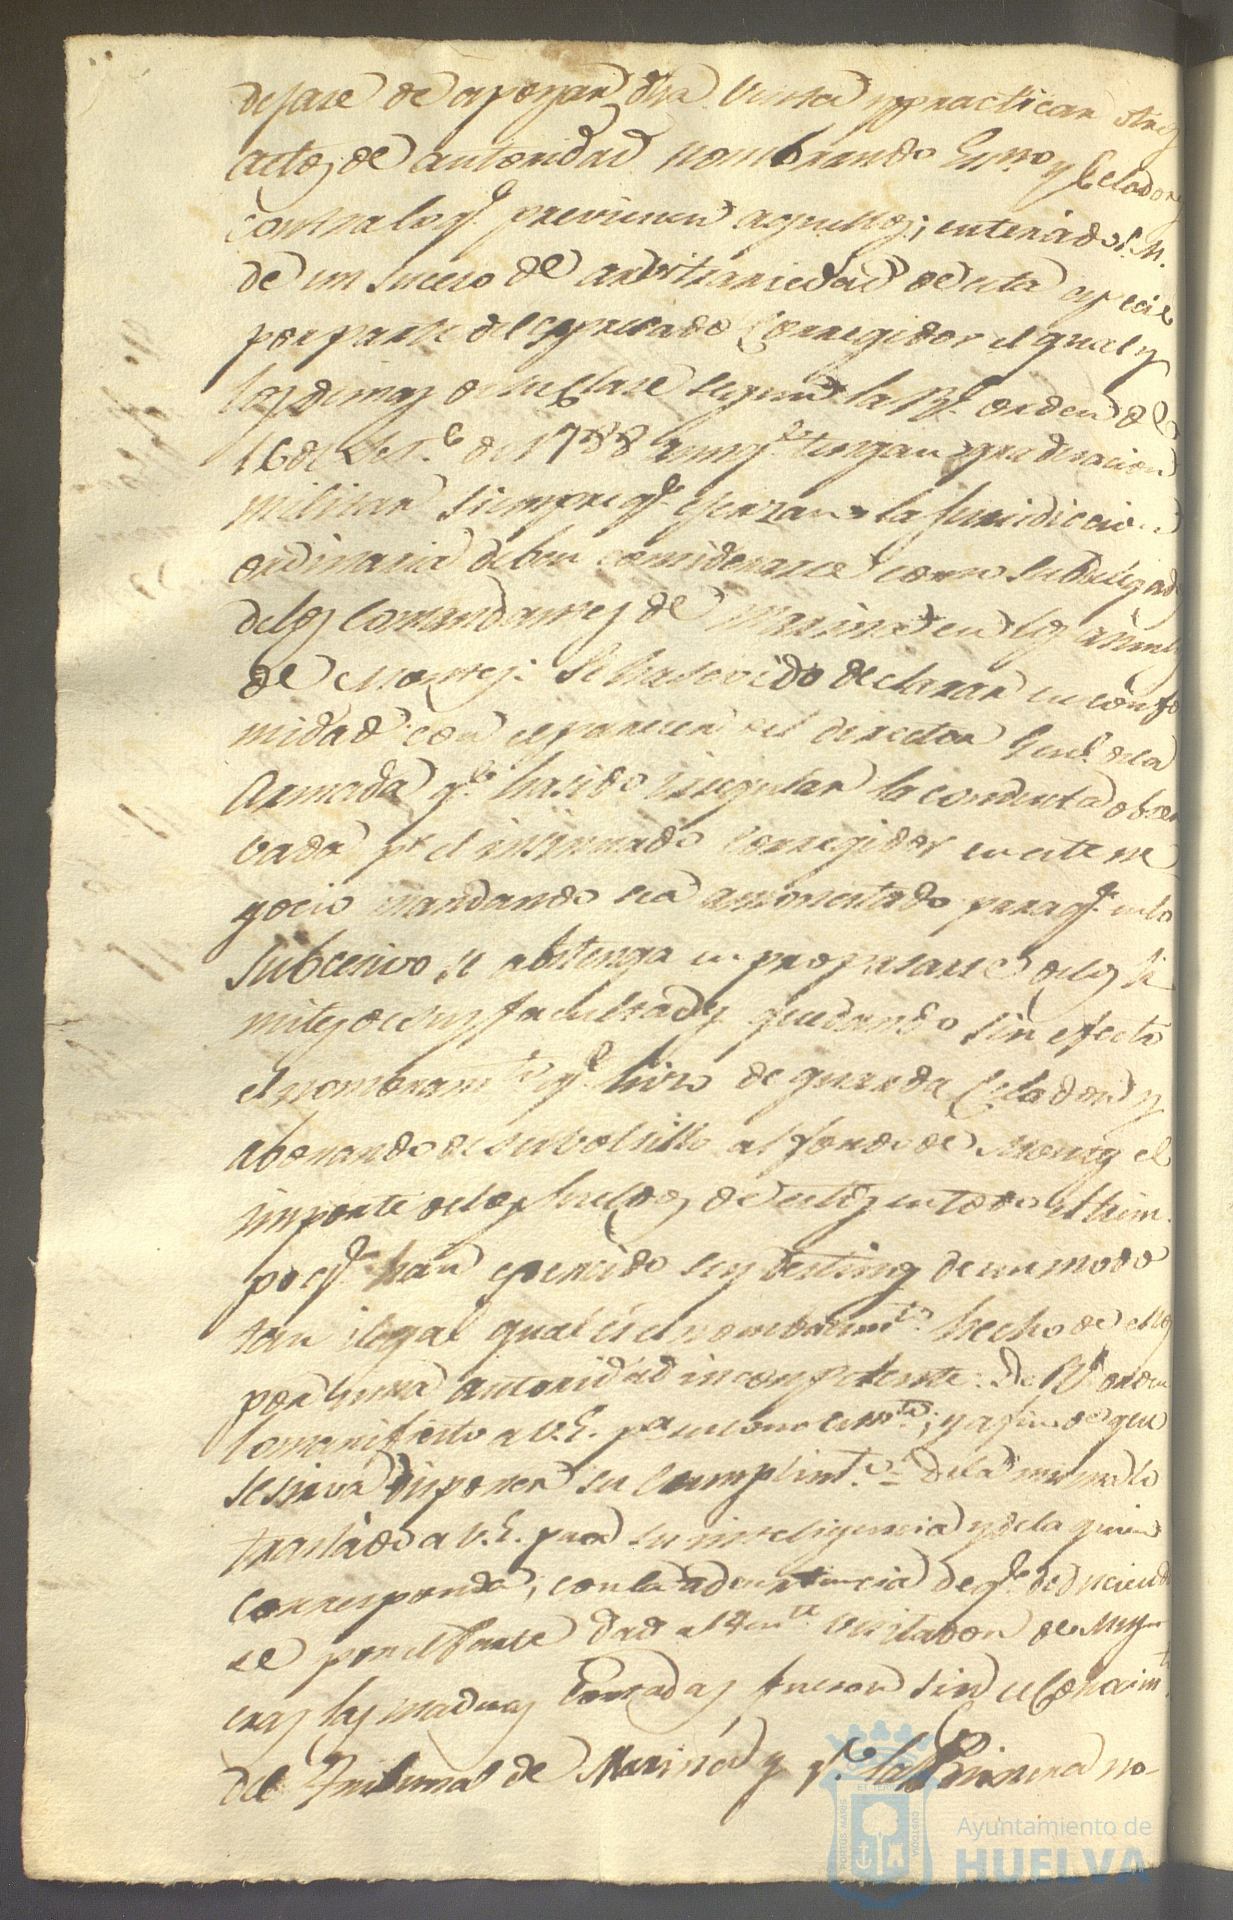 dejase de apoyar dha visita y practicar otros
actos de autoridad nombrando Essno y Celadores
contra lo q.e previenen aquellos; enterado S. M.
de un suceso de arvitrariedad de esta especie
por parte del expresado Corregidor el qual y
los demas de su clase segun la Rl. orden de
16 de Set.e de 1788 aunq.e tengan graduacion
militar siempre q.e exerzan la Jurisdiccion
ordinaria deben considerarse como Subdelegados
de los Comandantes de Marina en los asuntos
de Montes: Se ha servido declarar en confor
midad con el parecer del director Genl. de la
Armada q.e ha sido irregular la conducta obser
vada pr. el insinuado Corregidor en este ne
gocio mandando sea amonestado para q.e en lo
subcesivo se abstenga en propasarse de los li
mites de sus facultades quedando sin efecto
el nombram.to q.e hizo de guarda Celador y
abonando de su bolsillo al fondo de Montes el
importe de los sueldos de estos en todo el tiem
po q.e han exercido sus destinos de un modo
tan ilegal qual es el nombram.to hecho de ellos
por una autoridad incompetente. De Rl orden
lo manifiesto a V.E. pa. su conocim.to; y a fin de que
se sirva disponer su cumplim.to = De la misma lo
traslado a V.E. para su inteligencia y de la quien
corresponda; con la advertencia de q.e deducien
se por el parte dado al Then.te visitador de
las maderas cortadas fueron sin el conocim.to
del Tribunal de Marina y q.e la Primera no-
Ayuntamiento de
HUELVA